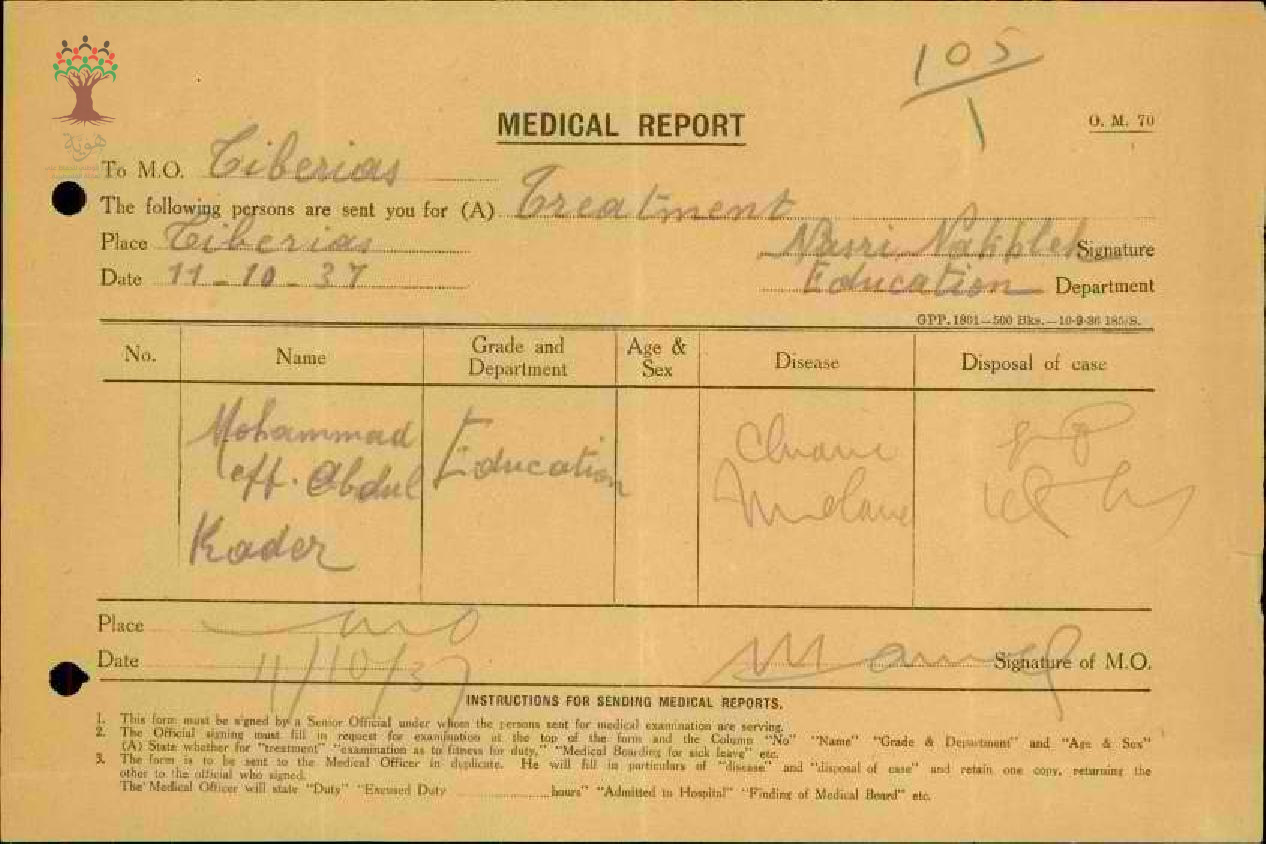 105
1
MEDICAL REPORT
O. M. 70
هوية
To M.O. Tiberias
The following persons are sent you for (A) Treatment
Place Tiberias
Nasri Nakhleh Signature
Date 11-10-37
Education Department
GPP. 1861—500 Bks.—10-9-36 185/S.
No. Name Grade and Department Age & Sex Disease Disposal of case
Mohammad
eff. Abdul
Kader
Education
Place
Date 11/10/37
Signature of M.O.
INSTRUCTIONS FOR SENDING MEDICAL REPORTS.
1. This form must be signed by a Senior Official under whom the persons sent for medical examination are serving.
2. The Official signing must fill in request for examination at the top of the form and the Column "No" "Name" "Grade & Department" and "Age & Sex"
(A) State whether for "treatment" "examination as to fitness for duty," "Medical Boarding for sick leave" etc.
3. The form is to be sent to the Medical Officer in duplicate. He will fill in particulars of "disease" and "disposal of case" and retain one copy, returning the
other to the official who signed.
The Medical Officer will state "Duty" "Excused Duty ........ hours" "Admitted to Hospital" "Finding of Medical Board" etc.